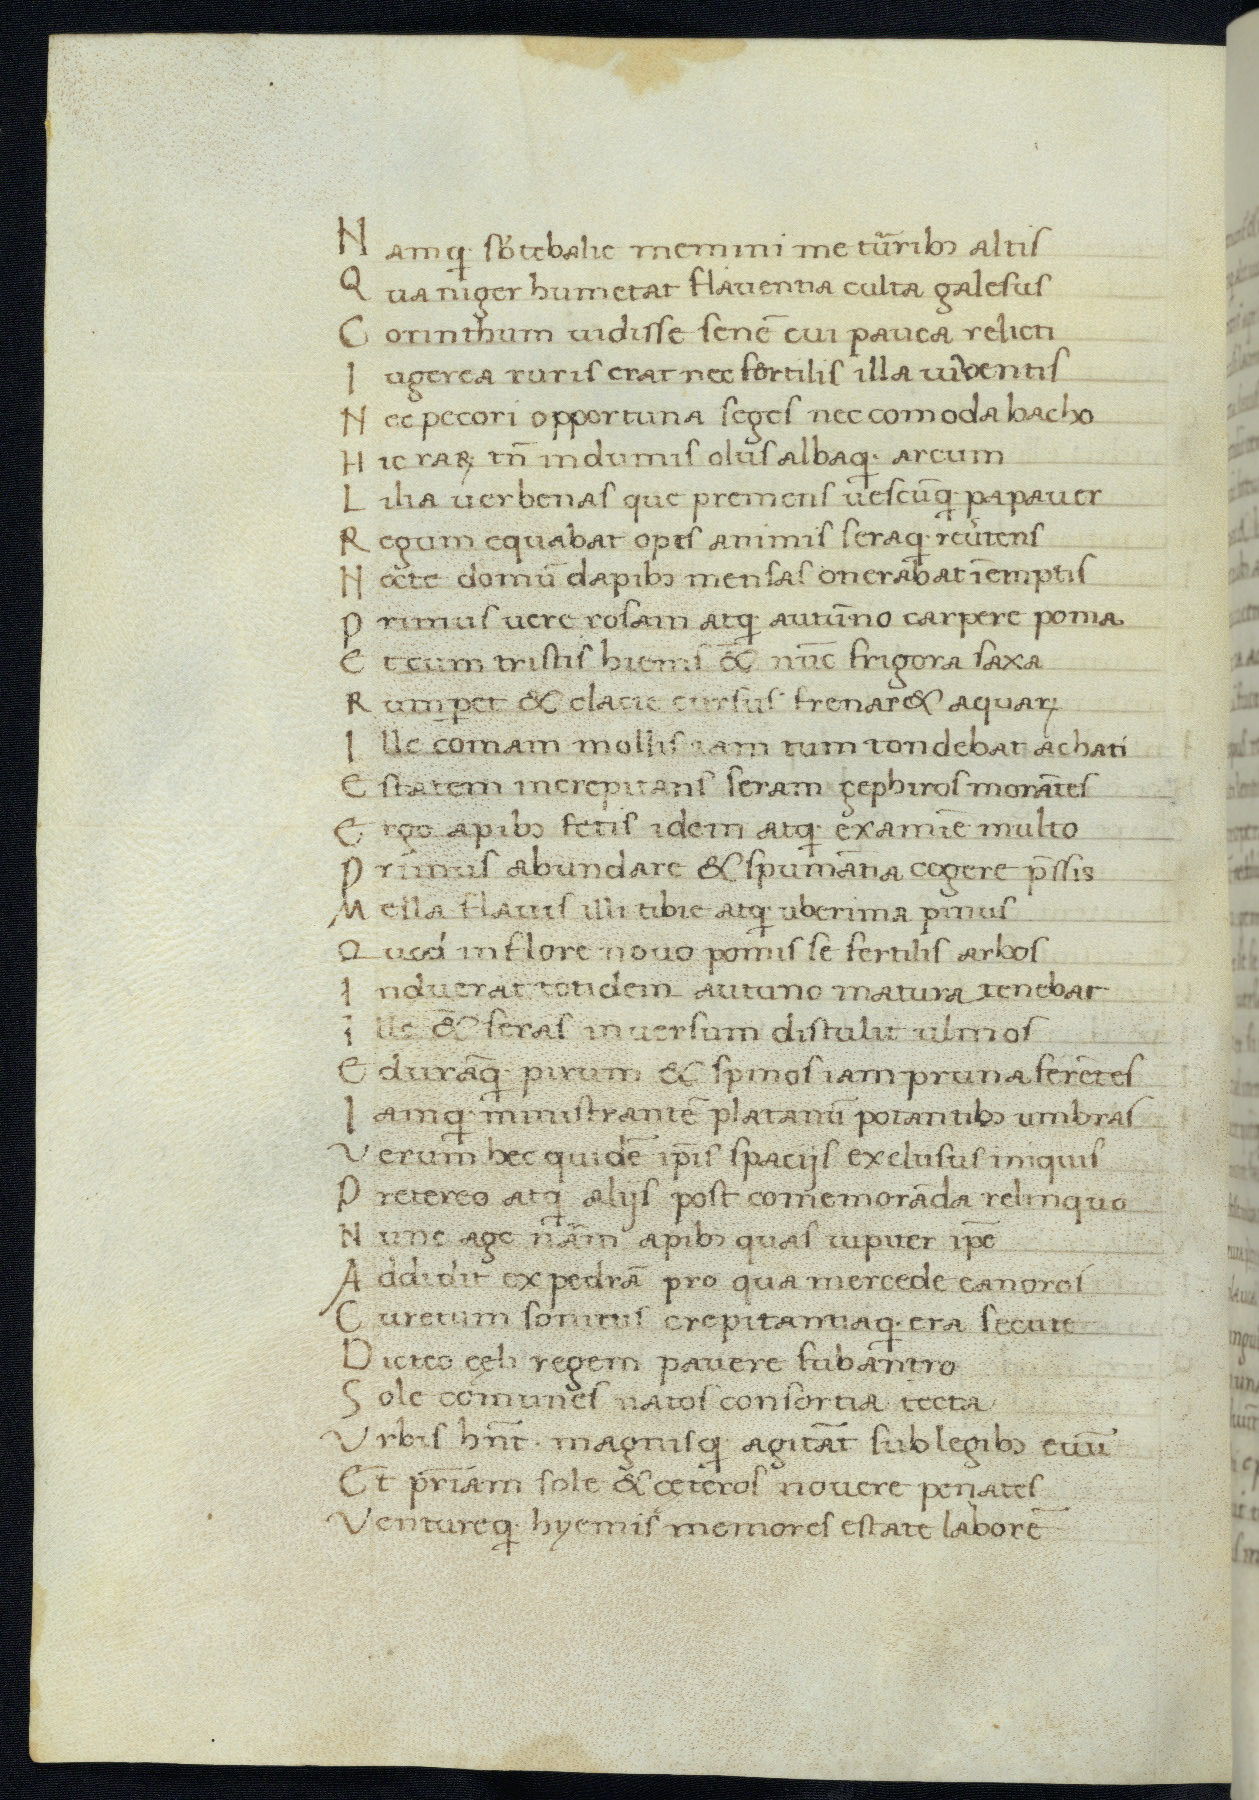 Namq; sb́ tebalie memini me tur̃ribꝰ altis
Qua niger humetat flauentia culta galesus
Corinthum uidisse senẽ cui pauca relicti
Iugerea ruris erat nec fertilis illa iuuentis
Nec pecori opportuna seges nec comoda bacho
Hic raꝝ tñ in dumis olus albaq; arcum
Lilia uerbenas que premens uescũq; papauer
Regum equabat opes animis seraq; reũtens
Nocte domũ dapibꝰ mensas onerabat ĩemptis
Primus uere rosam atq; autũno carpere poma
Et cum tristis hiems & nũc frigora saxa
Rumperet & glacie cursus frenar& aquaꝝ
Ille comam mollis iam tum tondebat achati
Estatem increpitans seram zephiros morãtes
Ergo apibꝰ fetis idem atq; examĩe multo
Primus abundare & spumãtia cogere p̃ssis
Mella flauis illi tibie atq; uberima pinus
Quod́ in flore nouo pomis se fertilis arbos
Induerat totidem autuno matura tenebat
ille & seras in uersum distulit ulmos
Edurãq; pirum & spinos iam pruna ferẽtes
Iamq; ministrantẽ platanũ potantibꝰ umbras
Verum hec quidẽ ip̃is spacijs exclusus iniquis
Pretereo atq; alijs post comemorãda relinquo
Nunc age nãm apibꝰ quas iupuer ip̃e
Addidit expedrã pro qua mercede canoros
Curetum sonitus crepitantiaq; era secute
Dicteo celi regem pauere sub antro
Sole comunes natos consortia tecta
Vrbis hñt magnisq; agitãt sub legibꝰ euũ
Et p̃riam sole & ceteros nouere penates
Ventureq; hyemis memores estate laborẽ